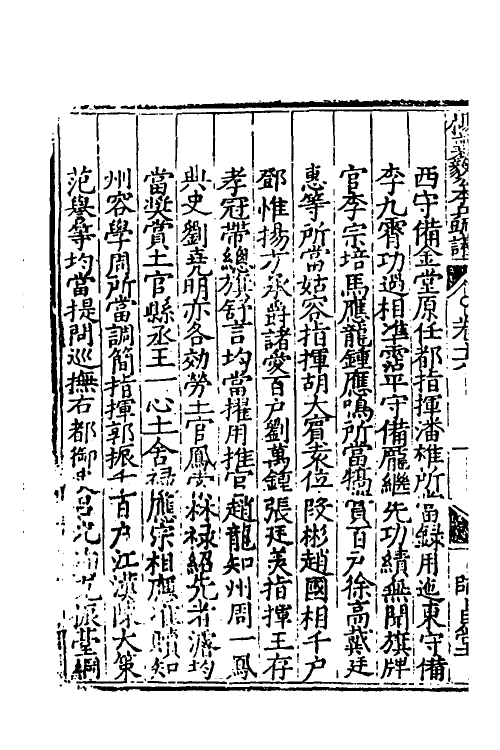 西守備金堂原任都指揮潘維所當錄用迤東守備
李九霄功過相準霑平守備龐繼先功績無聞旗牌
官李宗培馬應龍鍾應鳴所當犒賞百户徐高戴廷
惠等所當姑容指揮胡大賓袁位段彬趙國相千户
鄧惟揚方承爵諸愛百户劉萬鍾張廷美指揮王存
孝冠帶總旗舒言均當擢用推官趙龍知州周一鳳
典史劉堯明亦各効勞土官鳳 林禄紹先者濬均
當奬賞土官縣丞王一心土舍禄應宗相應准贖知
州容學周所當調簡指揮郭振千百户江漢陳大策
范譽等均當提問巡撫右都御史吕光洵 振堂綱